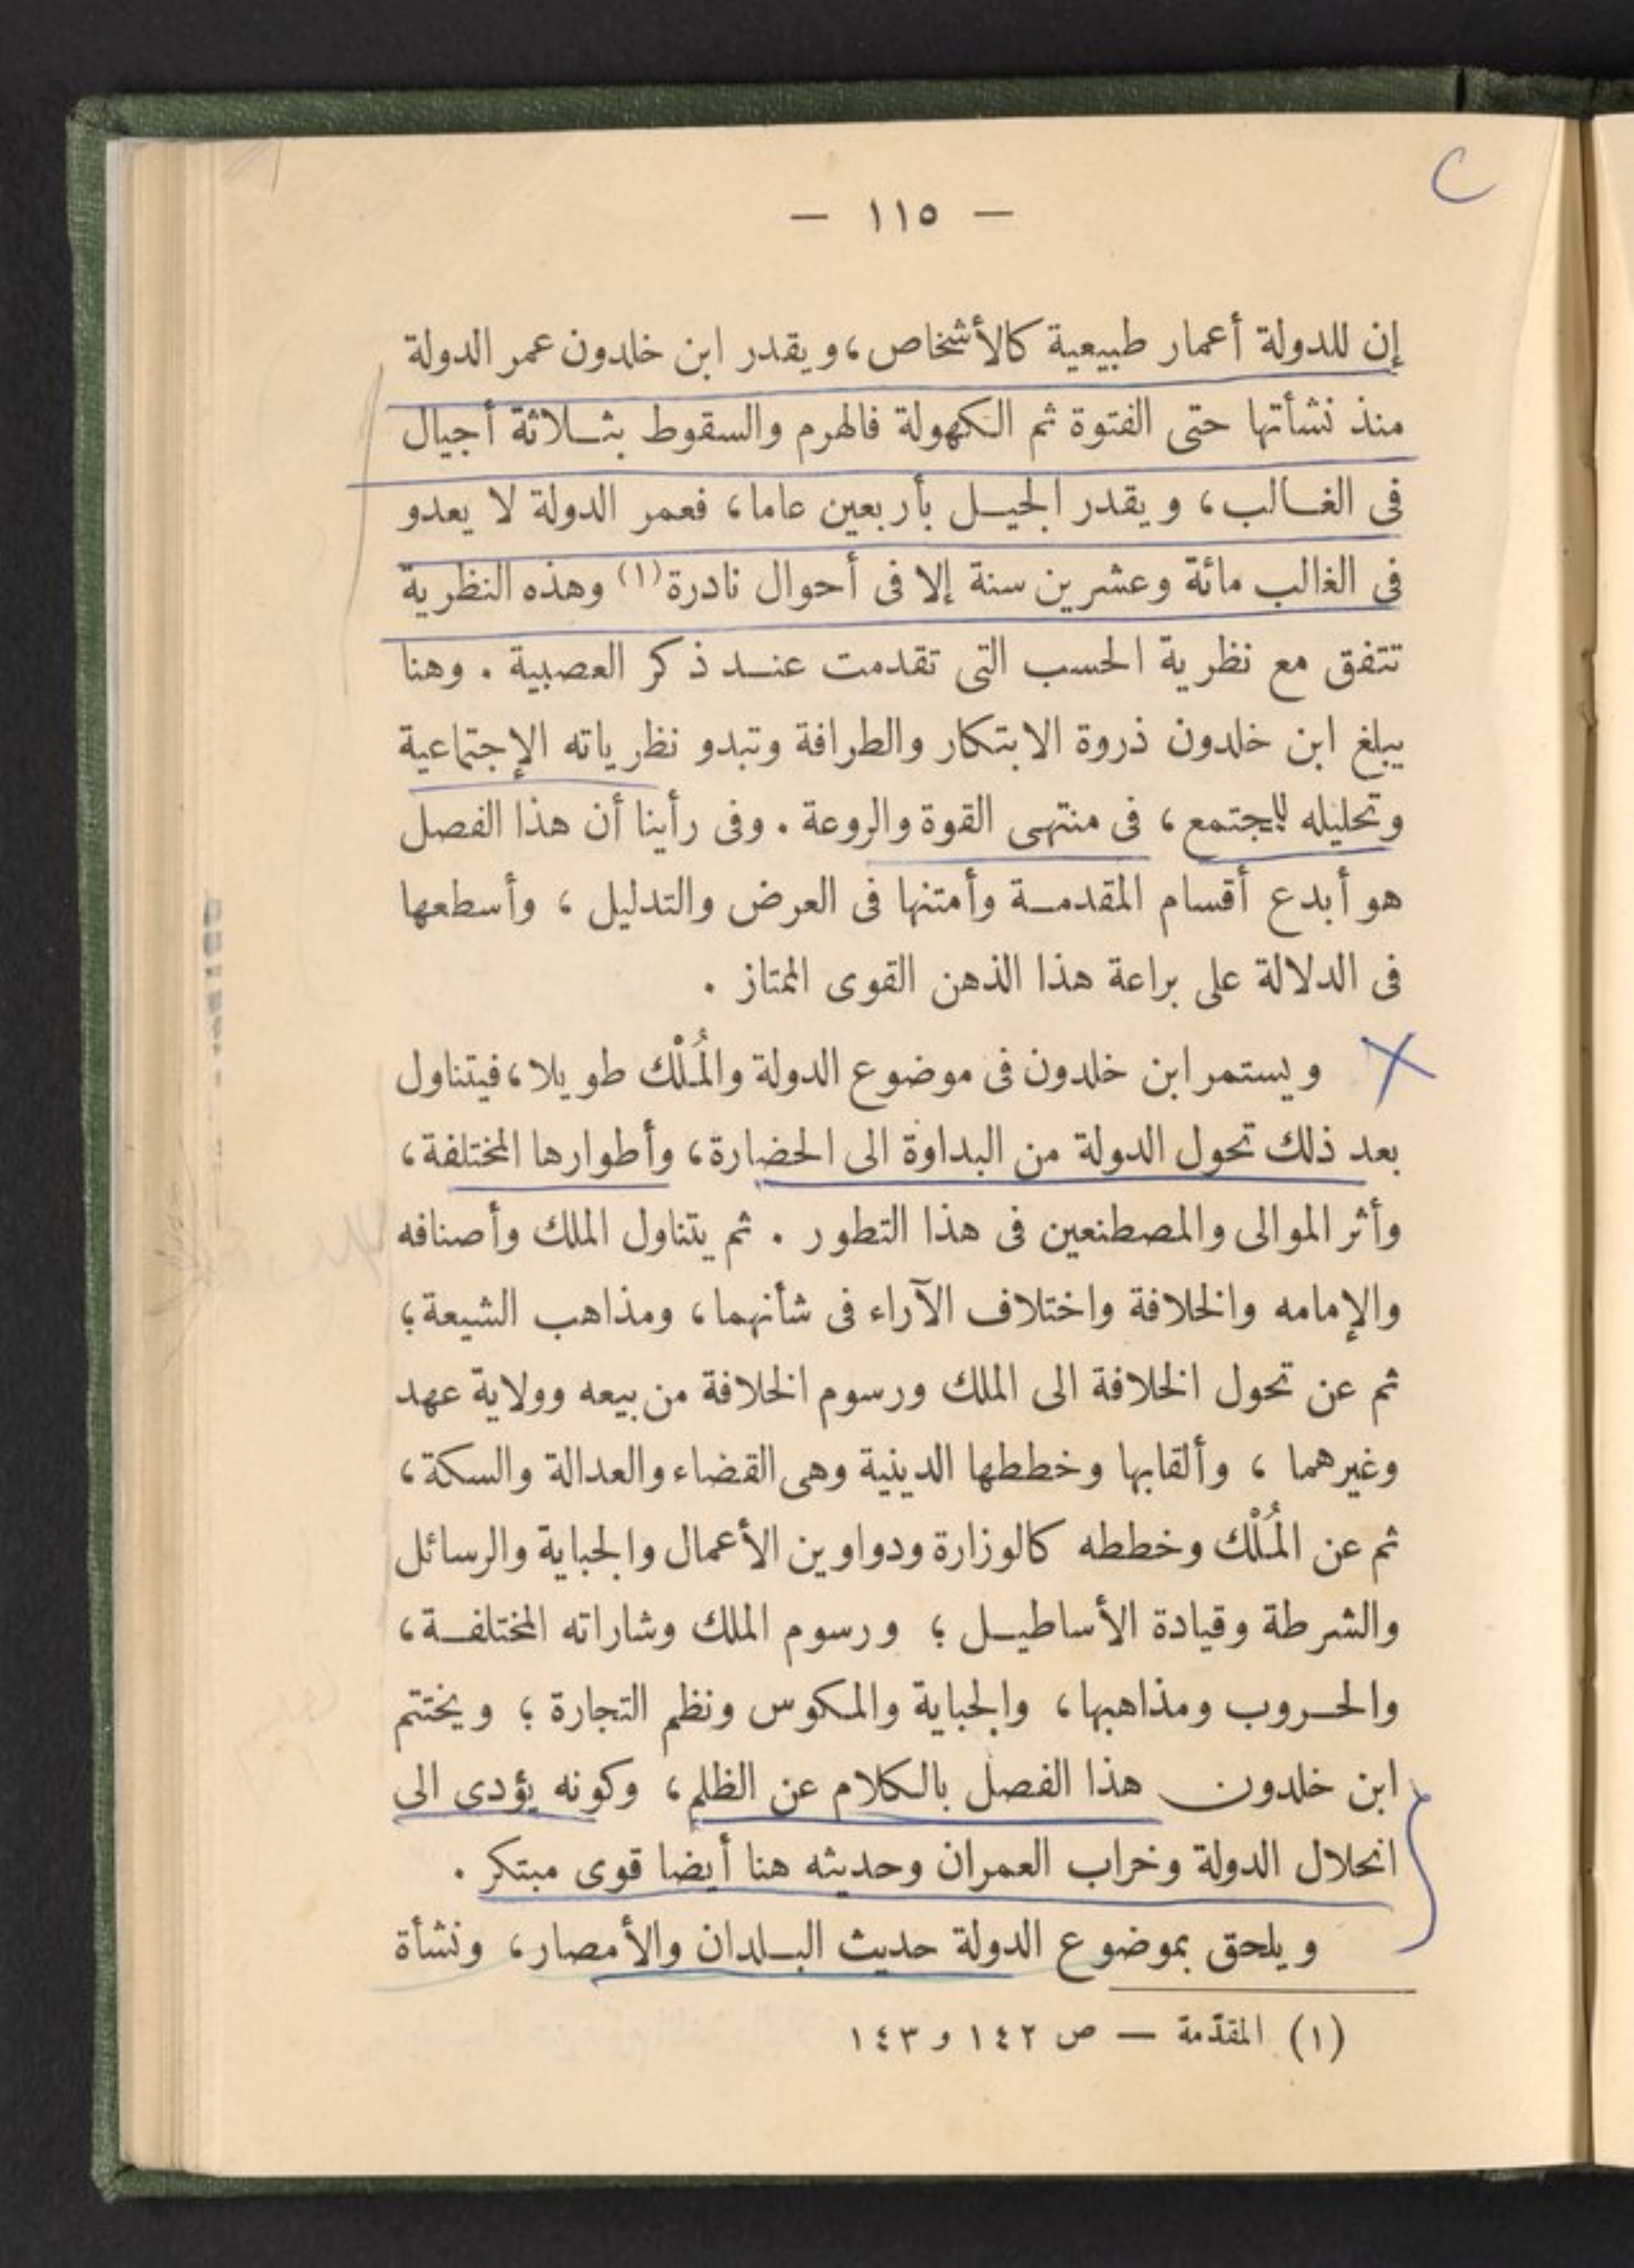 — ١١٥ —
إن للدولة أعمار طبيعية كالأشخاص، ويقدر ابن خلدون عمر الدولة
منذ نشأتها حتى الفتوة ثم الكهولة فالهرم والسقوط بثلاثة أجيال
فى الغالب، ويقدر الجيل بأربعين عاما، فعمر الدولة لا يعدو
فى الغالب مائة وعشرين سنة إلا فى أحوال نادرة(١) وهذه النظرية
تتفق مع نظرية الحسب التى تقدمت عند ذكر العصبية . وهنا
يبلغ ابن خلدون ذروة الابتكار والطرافة وتبدو نظرياته الإجتماعية
وتحليله للمجتمع، فى منتهى القوة والروعة . وفى رأينا أن هذا الفصل
هو أبدع أقسام المقدمة وأمتنها فى العرض والتدليل ، وأسطعها
فى الدلالة على براعة هذا الذهن القوى الممتاز .
ويستمر ابن خلدون فى موضوع الدولة والمُلْك طويلا، فيتناول
بعد ذلك تحول الدولة من البداوة الى الحضارة، وأطوارها المختلفة،
وأثر الموالى والمصطنعين فى هذا التطور . ثم يتناول الملك وأصنافه
والإمامه والخلافة واختلاف الآراء فى شأنهما، ومذاهب الشيعة؛
ثم عن تحول الخلافة الى الملك ورسوم الخلافة من بيعه وولاية عهد
وغيرهما ، وألقابها وخططها الدينية وهى القضاء والعدالة والسكة،
ثم عن المُلْك وخططه كالوزارة ودواوين الأعمال والجباية والرسائل
والشرطة وقيادة الأساطيل ؛ ورسوم الملك وشاراته المختلفة،
والحروب ومذاهبها، والجباية والمكوس ونظم التجارة ؛ ويختتم
ابن خلدون هذا الفصل بالكلام عن الظلم، وكونه يؤدى الى
انحلال الدولة وخراب العمران وحديثه هنا أيضا قوى مبتكر .
ويلحق بموضوع الدولة حديث البلدان والأمصار، ونشأة
(١) المقدّمة — ص ١٤٢ و ١٤٣